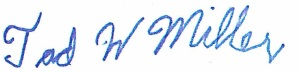 Tod W Miller